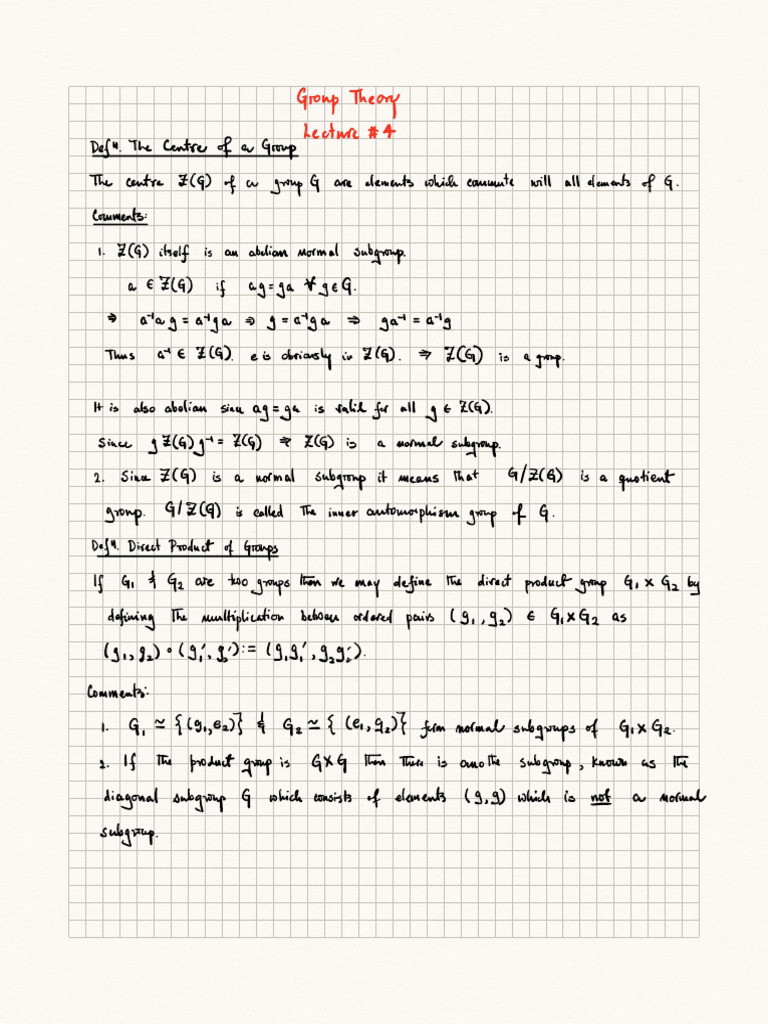 Group Theory
Lecture #4
Defⁿ. The Centre of a Group
The centre Z(G) of a group G are elements which commute will all elements of G.
Comments:
1. Z(G) itself is an abelian normal subgroup.
a ∈ Z(G) if ag = ga ∀ g ∈ G.
⇒ a⁻¹a g = a⁻¹ga ⇒ g = a⁻¹ga ⇒ ga⁻¹ = a⁻¹g
Thus a⁻¹ ∈ Z(G). e is obviously in Z(G). ⇒ Z(G) is a group.
It is also abelian since ag = ga is valid for all g ∈ Z(G).
Since g Z(G) g⁻¹ = Z(G) ⇒ Z(G) is a normal subgroup.
2. Since Z(G) is a normal subgroup it means that G/Z(G) is a quotient
group. G/Z(G) is called the inner automorphism group of G.
Defⁿ. Direct Product of Groups
If G₁ & G₂ are two groups then we may define the direct product group G₁ × G₂ by
defining the multiplication between ordered pairs (g₁, g₂) ∈ G₁×G₂ as
(g₁, g₂) ∘ (g₁′, g₂′) := (g₁g₁′, g₂g₂′).
Comments:
1. G₁ ≃ {(g₁, e₂)} & G₂ ≃ {(e₁, g₂)} form normal subgroups of G₁×G₂.
2. If the product group is G×G then there is anothe subgroup, known as the
diagonal subgroup G which consists of elements (g, g) which is not a normal
subgroup.